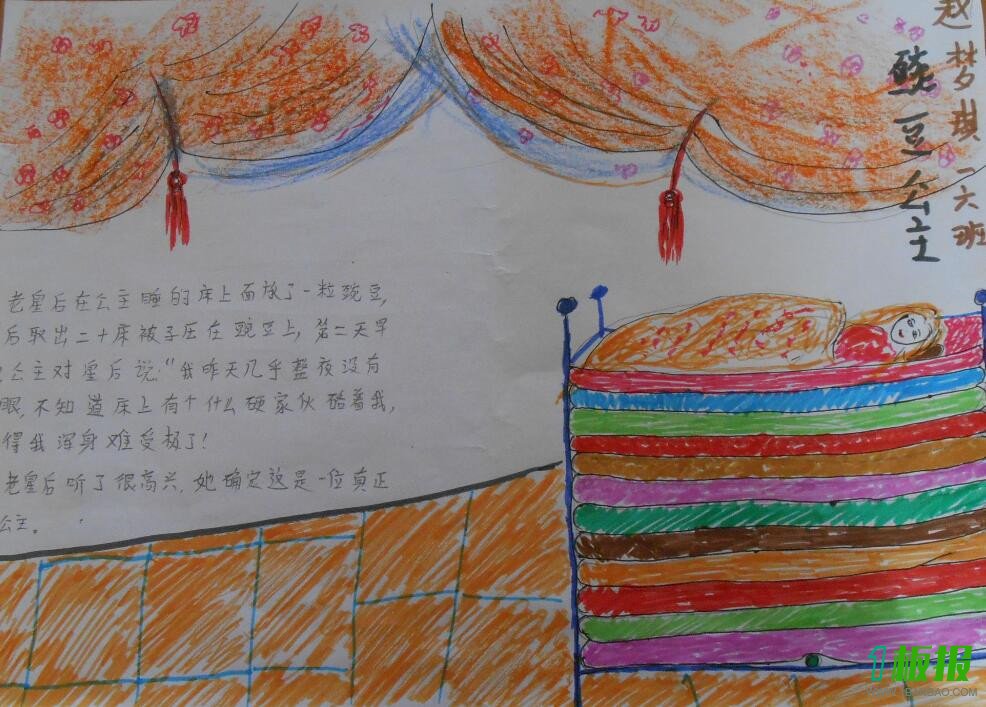 赵梦琪 一六班
豌豆公主
老皇后在公主睡的床上面放了一粒豌豆,
后取出二十床被子压在豌豆上,第二天早
公主对皇后说:"我昨天几乎整夜没有
眼,不知道床上有个什么硬家伙硌着我,
得我浑身难受极了!
老皇后听了很高兴,她确定这是一位真正
公主。
板报